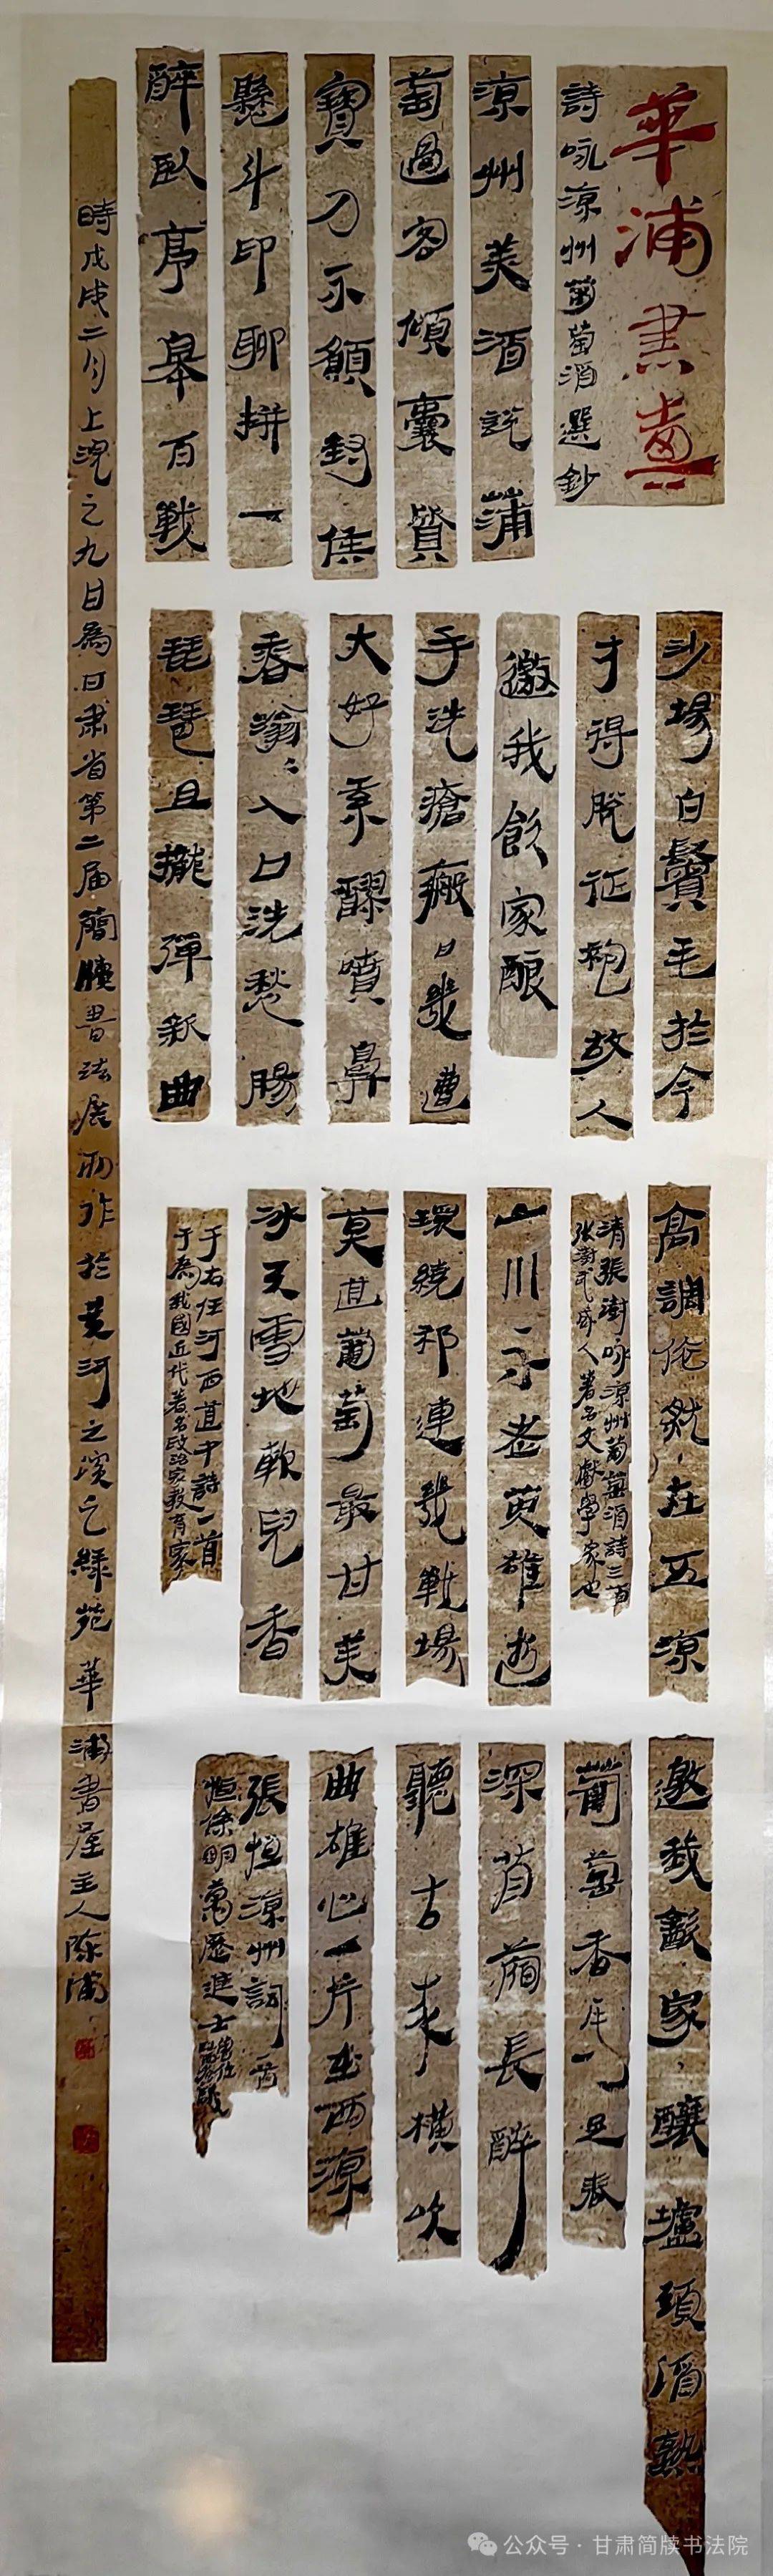 華浦書畫
詩咏凉州葡萄酒選鈔
凉州美酒説蒲
萄過客傾囊質
寶刀不願封侯
懸斗印聊拼一
醉臥亭皋百戰
沙場白鬢毛於今
才得脫征袍故人
邀我飲家酿
手洗瘡瘢日幾遭
大好東醪噴鼻
香滃入口洗愁腸
琵琶且攏彈新曲
高調伦就在五凉
清張澍咏凉州葡萄酒詩三首
张澍武威人著名文獻學家也
山川不老英雄逝
環繞祁連幾戰場
莫道葡萄最甘美
冰天雪地軟兒香
于右任河西道中詩一首
于為我國近代著名政治家教育家
邀我歡家釀壚頭酒熟
葡萄香馬足春
深苜蓿長醉
聽古來橫吹
曲雄心一片在西凉
張恒凉州詞一首
恒係明萬歷進士
時戊戌二月上浣之九日為甘肃省第二届簡牘書法展而作於黄河之濱之緑苑華浦書屋主人陈浦
公众号·甘肃简牍书法院